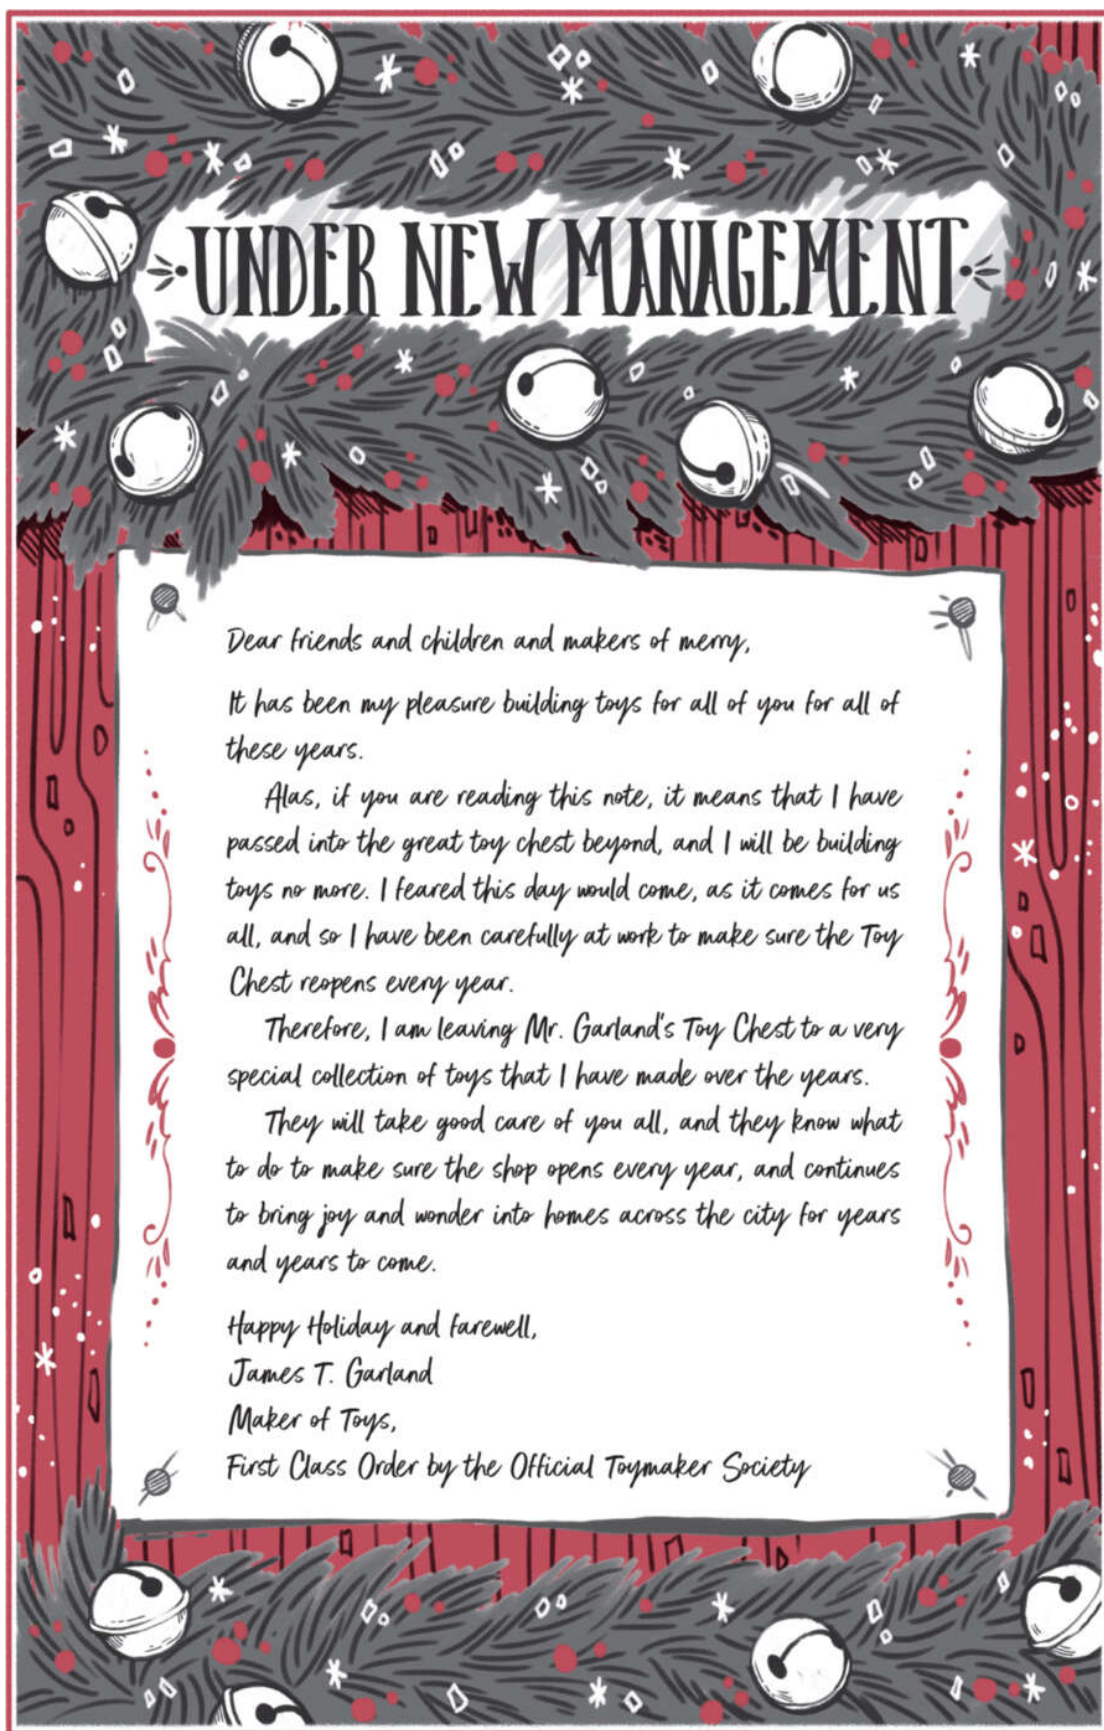 UNDER NEW MANAGEMENT
Dear friends and children and makers of merry,
It has been my pleasure building toys for all of you for all of
these years.
Alas, if you are reading this note, it means that I have
passed into the great toy chest beyond, and I will be building
toys no more. I feared this day would come, as it comes for us
all, and so I have been carefully at work to make sure the Toy
Chest reopens every year.
Therefore, I am leaving Mr. Garland's Toy Chest to a very
special collection of toys that I have made over the years.
They will take good care of you all, and they know what
to do to make sure the shop opens every year, and continues
to bring joy and wonder into homes across the city for years
and years to come.
Happy Holiday and farewell,
James T. Garland
Maker of Toys,
First Class Order by the Official Toymaker Society